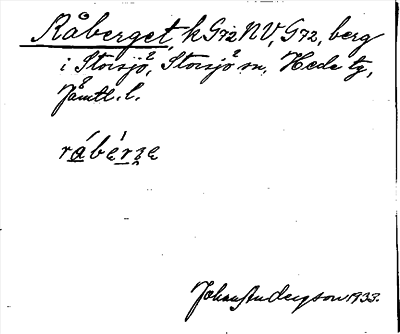 Råberget, k G72 NV, G72, berg
i Storsjö, Storsjö sn, Hede tg,
Jämtl. l.
rábérʒe
Johan Anderson 1933.